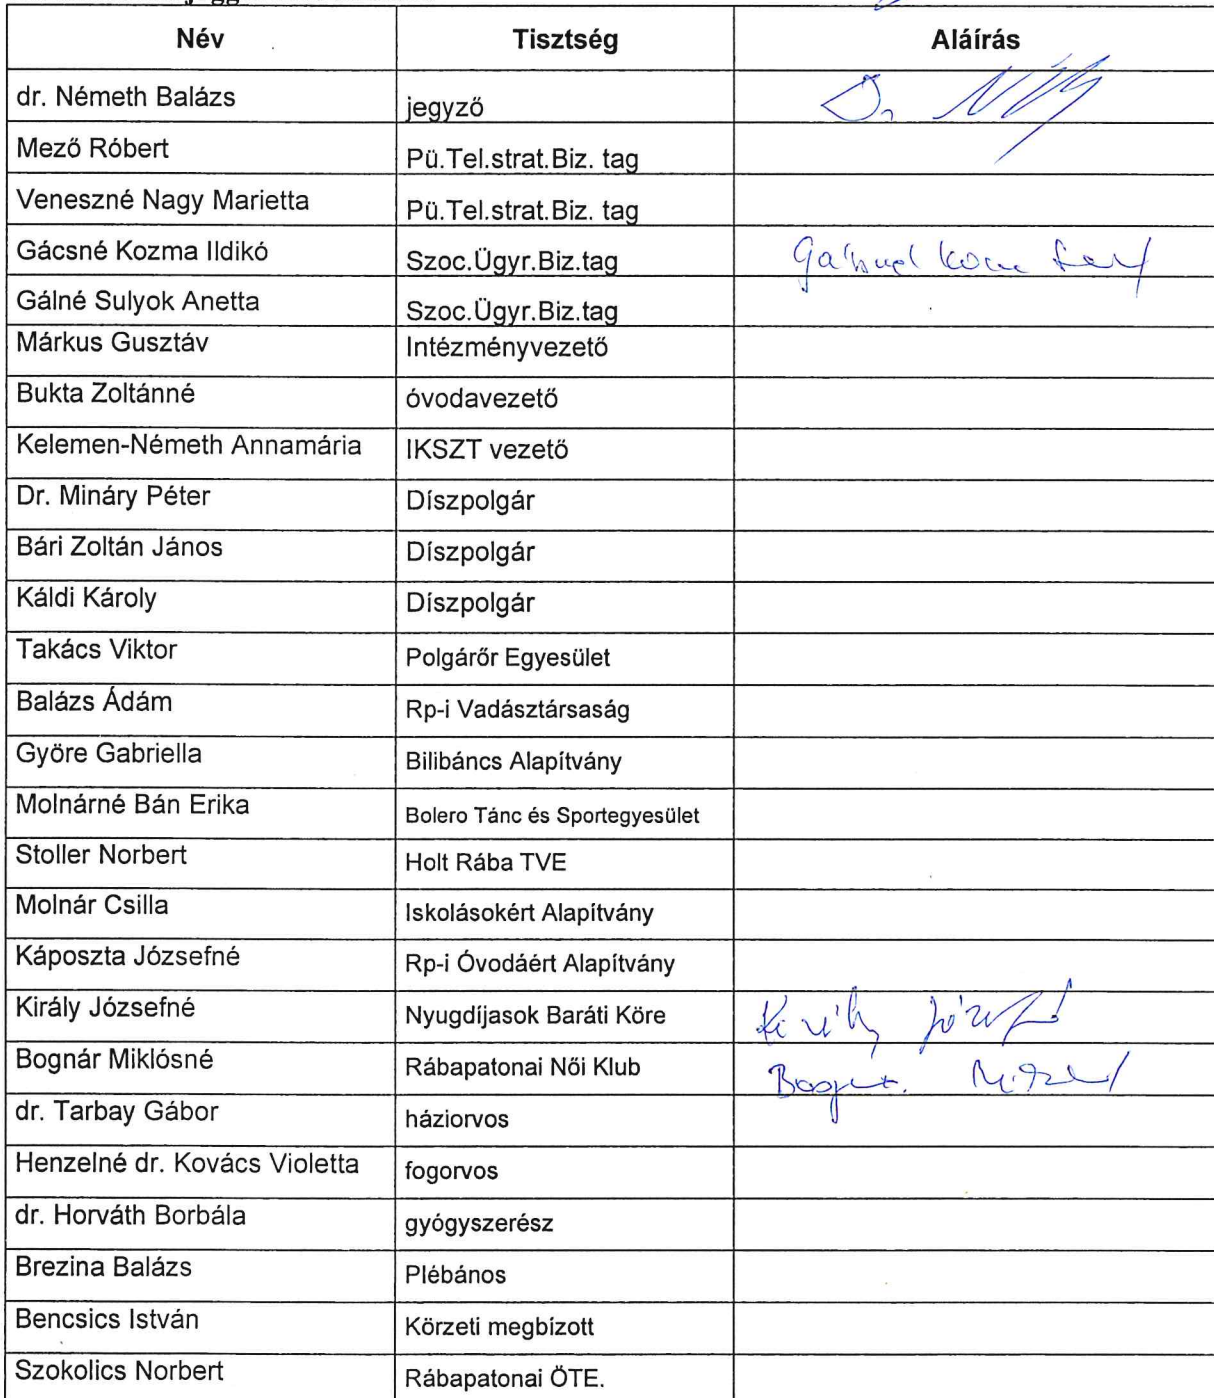 Név Tisztség Aláírás
dr. Németh Balázs jegyző Dr.
Mező Róbert Pü.Tel.strat.Biz. tag
Veneszné Nagy Marietta Pü.Tel.strat.Biz. tag
Gácsné Kozma Ildikó Szoc.Ügyr.Biz.tag
Gálné Sulyok Anetta Szoc.Ügyr.Biz.tag
Márkus Gusztáv Intézményvezető
Bukta Zoltánné óvodavezető
Kelemen-Németh Annamária IKSZT vezető
Dr. Mináry Péter Díszpolgár
Bári Zoltán János Díszpolgár
Káldi Károly Díszpolgár
Takács Viktor Polgárőr Egyesület
Balázs Ádám Rp-i Vadásztársaság
Györe Gabriella Bilibáncs Alapítvány
Molnárné Bán Erika Bolero Tánc és Sportegyesület
Stoller Norbert Holt Rába TVE
Molnár Csilla Iskolásokért Alapítvány
Káposzta Józsefné Rp-i Óvodáért Alapítvány
Király Józsefné Nyugdíjasok Baráti Köre Király Józsefné
Bognár Miklósné Rábapatonai Női Klub
dr. Tarbay Gábor háziorvos
Henzelné dr. Kovács Violetta fogorvos
dr. Horváth Borbála gyógyszerész
Brezina Balázs Plébános
Bencsics István Körzeti megbízott
Szokolics Norbert Rábapatonai ÖTE.